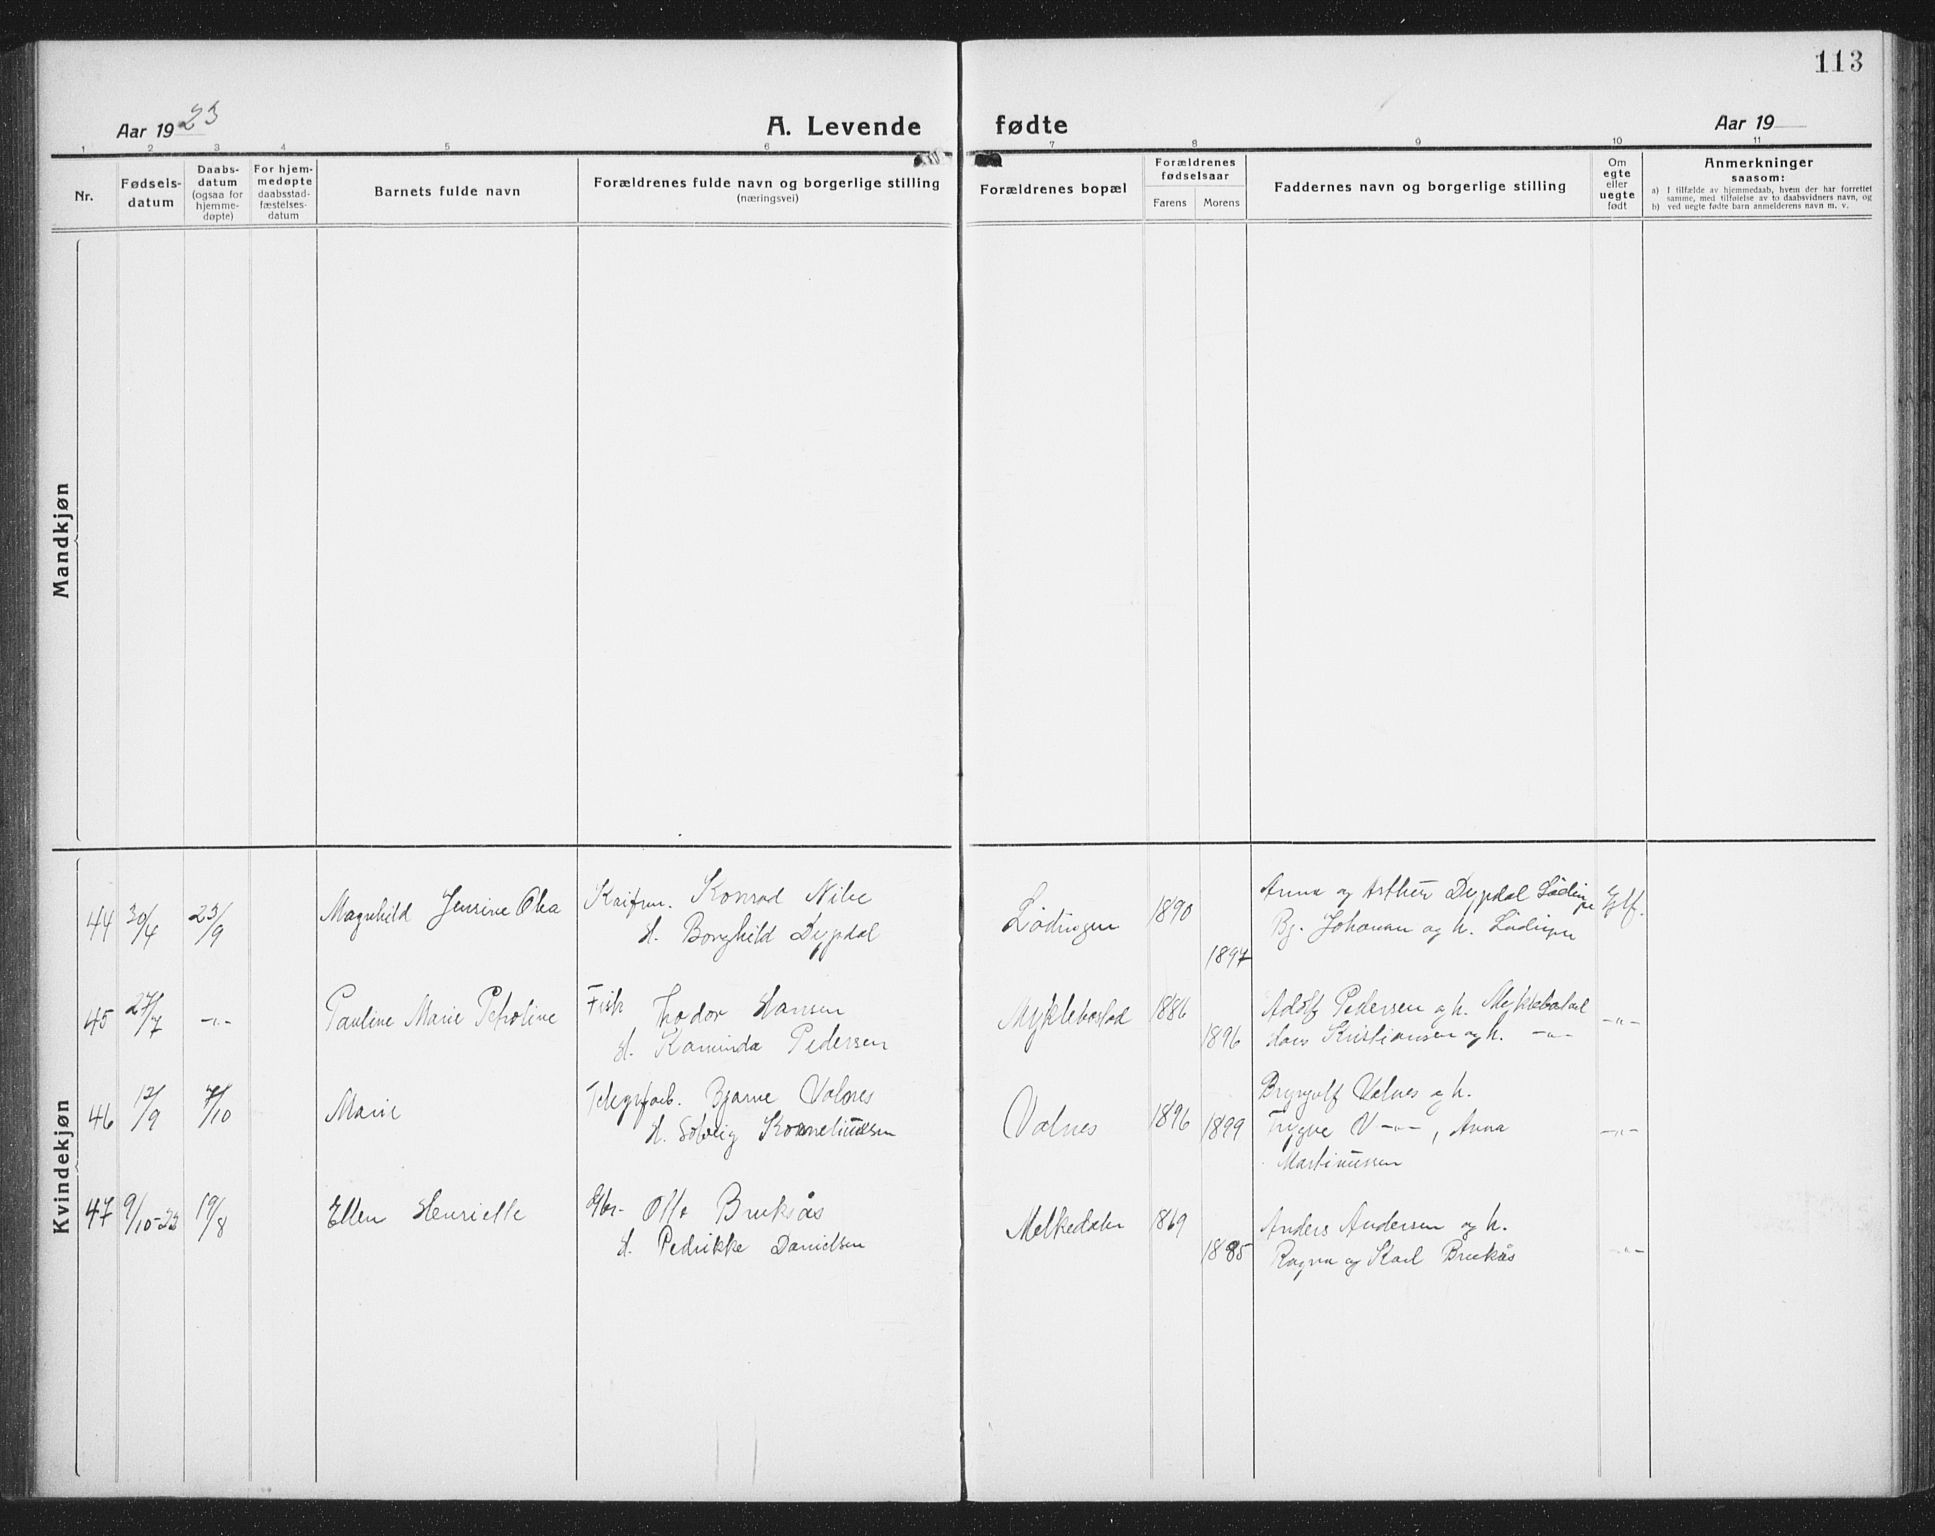 113
Aar 1923
A. Levende fødte
Aar 19
1 2 3 4 5 6 7 8 9 10 11
Nr.
Fødsels-
datum
Daabs-
datum
(ogsaa for
hjemme-
døpte)
For hjem-
medøpte
daabsstad-
fæstelses-
datum
Barnets fulde navn
Forældrenes fulde navn og borgerlige stilling
(næringsvei)
Forældrenes bopæl
Forældrenes
fødselsaar
Farens Morens
Faddernes navn og borgerlige stilling
Om
egte
eller
uegte
født
Anmerkninger
saasom:
a) I tilfælde av hjemmedaab, hvem der har forrettet
samme, med tilføielse av to daabsvidners navn, og
b) ved uegte fødte barn anmelderens navn m. v.
Mandkjøn
Kvindekjøn
44 30/4 23/9 Magnhild Jensine Olea
Konrad Nilse
H. Borghild Dypdal
Lødingen 1890
1897
Anna og Arthur Dypdal Lødingen
Bj. Johansen og h. Lødingen
45 27/7 -"- Pauline Marie Petroline
Fisk Thodor Hansen
H. Kaminda Pedersen
Myklebostad 1886
1896
Adolf Pedersen og h. Myklebostad
Hans Kristiansen og h. -"-
-"-
46 12/9 7/10 Marie
Telegrfarb. Bjarne Valnes
H. Solveig Korneliussen
Valnes 1896 1899
Brynjulf Valnes og h.
Trygve V -"-, Anna
Martinussen
-"-
47 9/10-23 19/8 Ellen Henriette
Gbr. Otto Bruksås
H. Pedrikke Danielsen
Melkedalen 1869
1885
Anders Andersen og h.
Ragna og Karl Bruksås
-"-